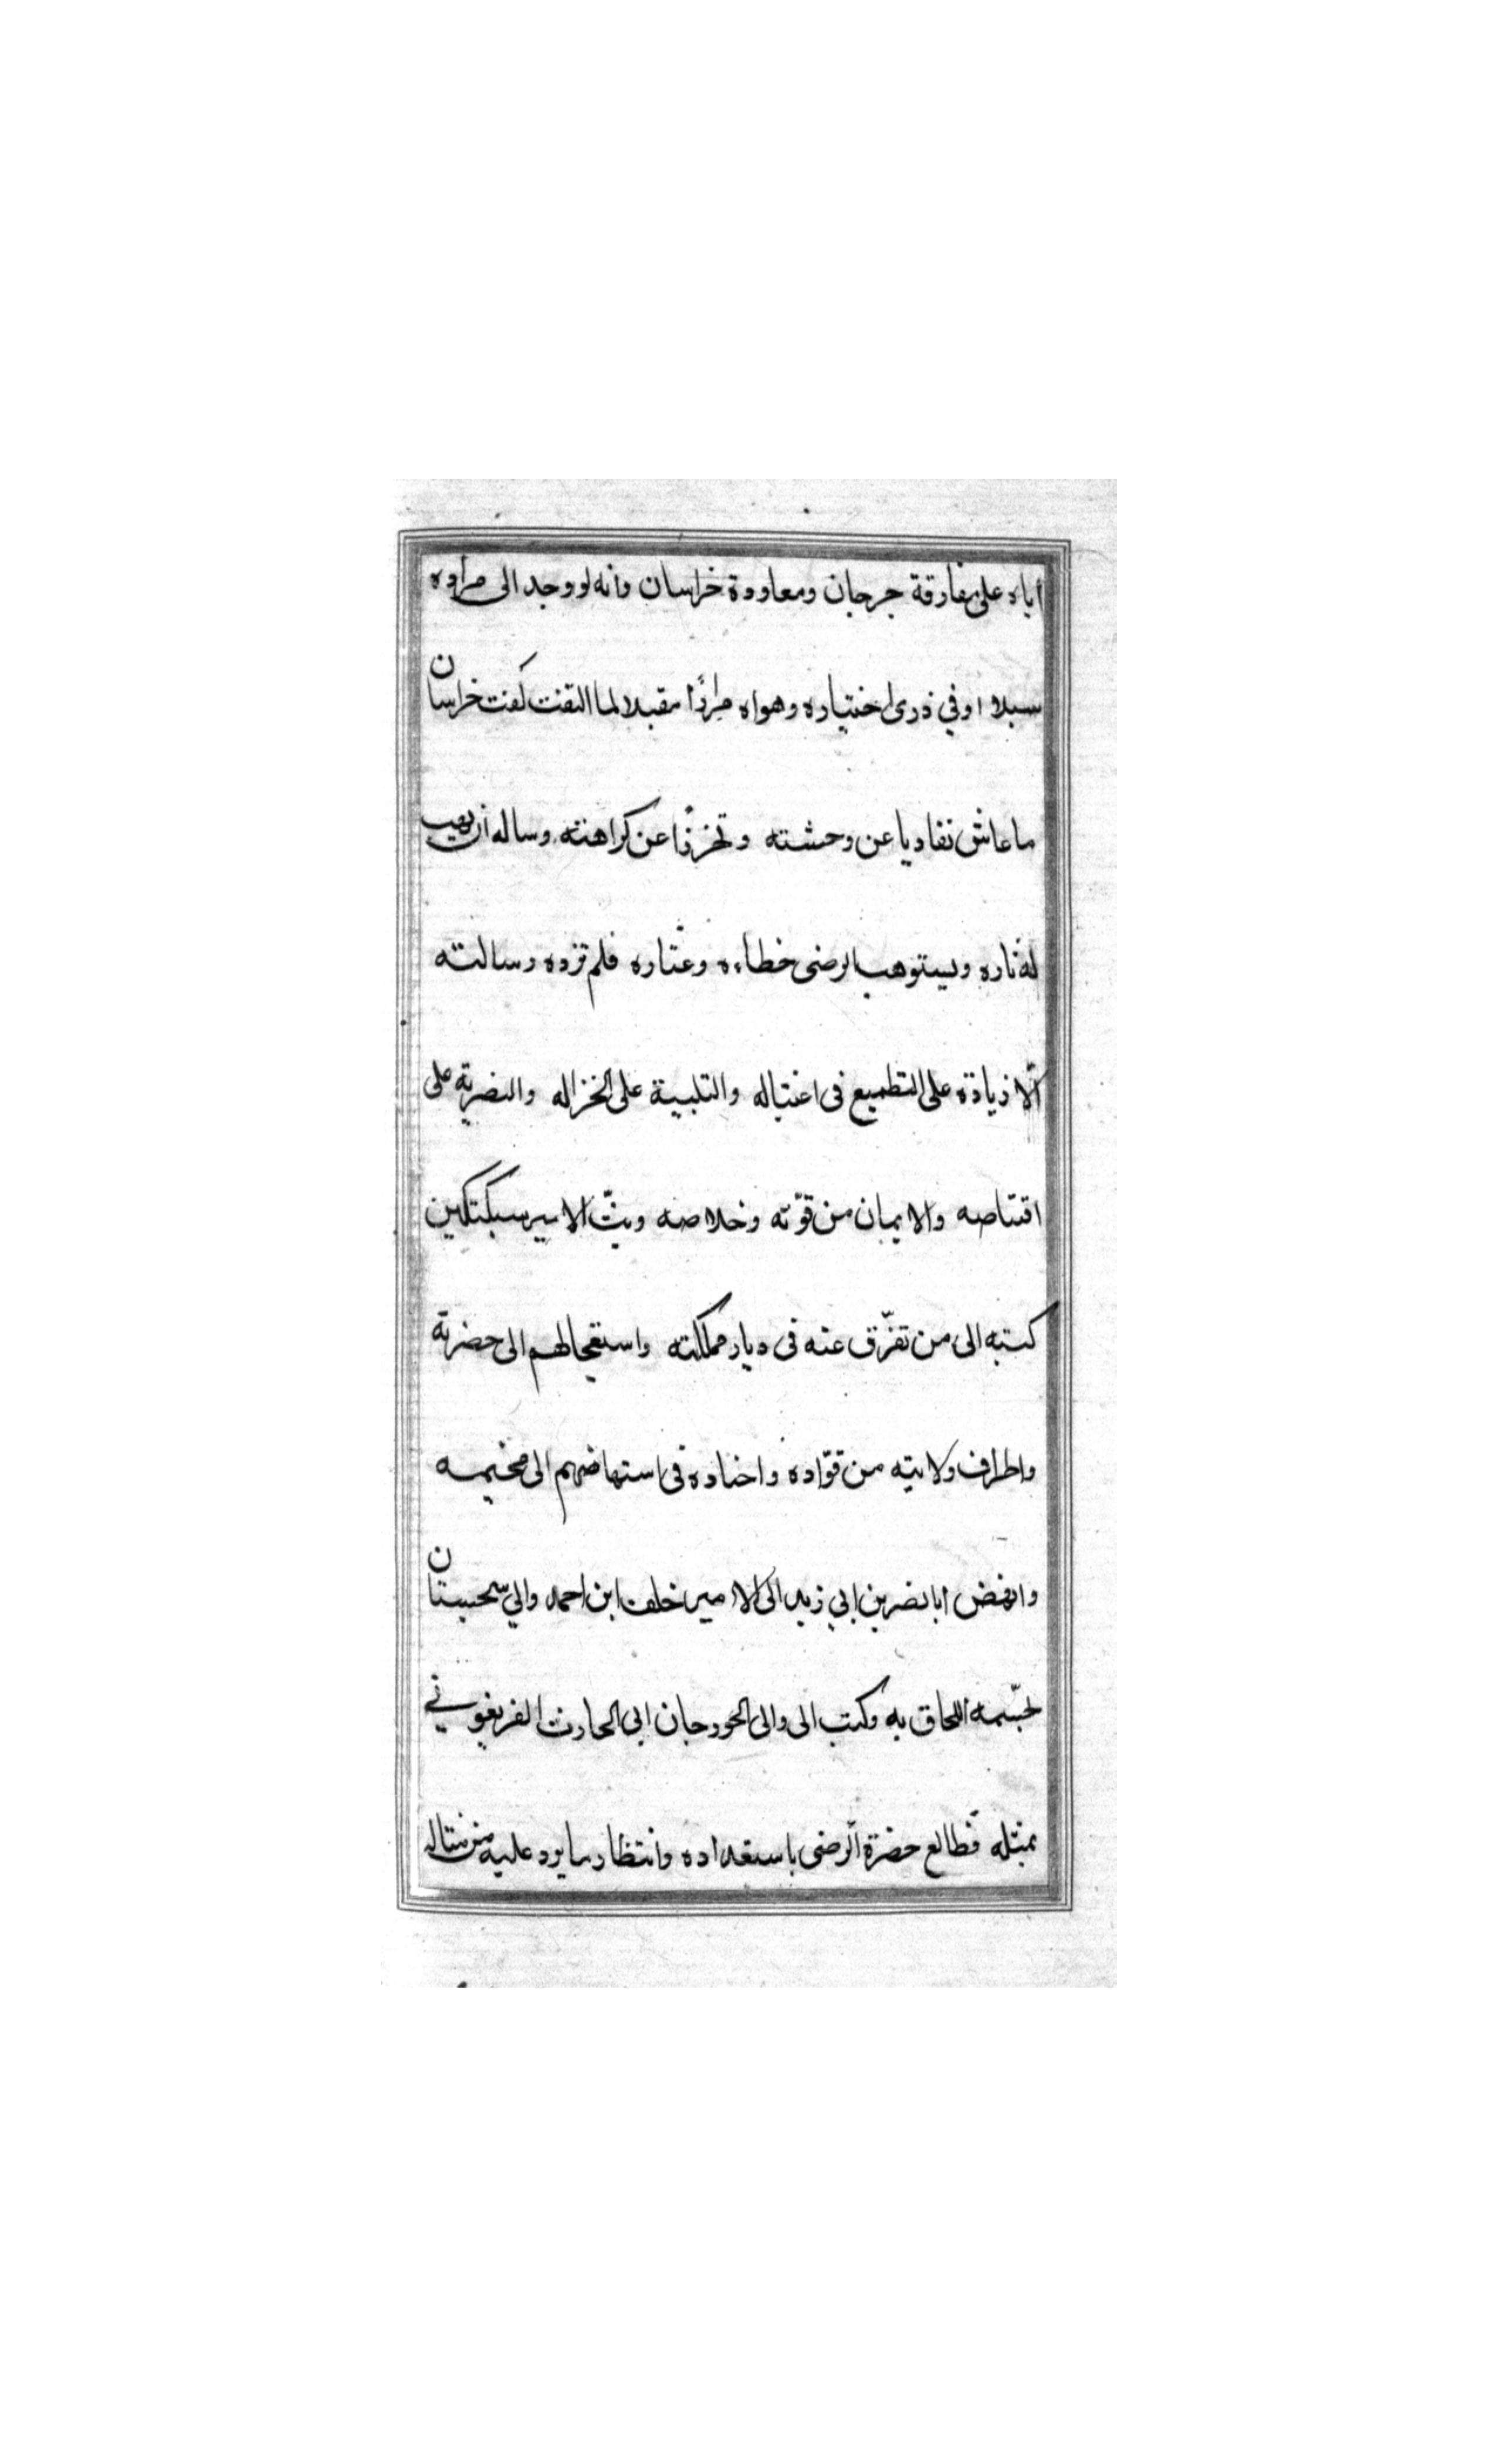 اياه على مفارقة جرجان ومعاودة خراسان وانه لو وجد الى مراده
سبيلا او في ذرى اختياره وهواه مرادًا مقبلا لما التفت لفت خراسان
ما عاش تفاديا عن وحشته وتحرزًا عن كراهته وساله ان يهب
له ثاره ويستوهب الرضى خطاءه وعثاره فلم تزده رسالته
الّا زيادة على التطميع في اغتياله والتلبية على انخزاله والتضرية على
اقتناصه والايمان من قوّته وخلاصه وبثّ الامير سبكتكين
كتبه الى من تفرّق عنه في ديار مملكته واستعجالهم الى حضرته
واطراف ولايته من قوّاده واجناده في استنهاضهم الى مخيمه
وانهض ابا نصر بن ابي زيد الى الامير خلف ابن احمد والي سجستان
لجشمه اللحاق به وكتب الى والى الجوزجان ابى الحارث الفريغوني
بمثله فطالع حضرة الرضى باستعداده وانتظار ما يرد عليه من مثاله